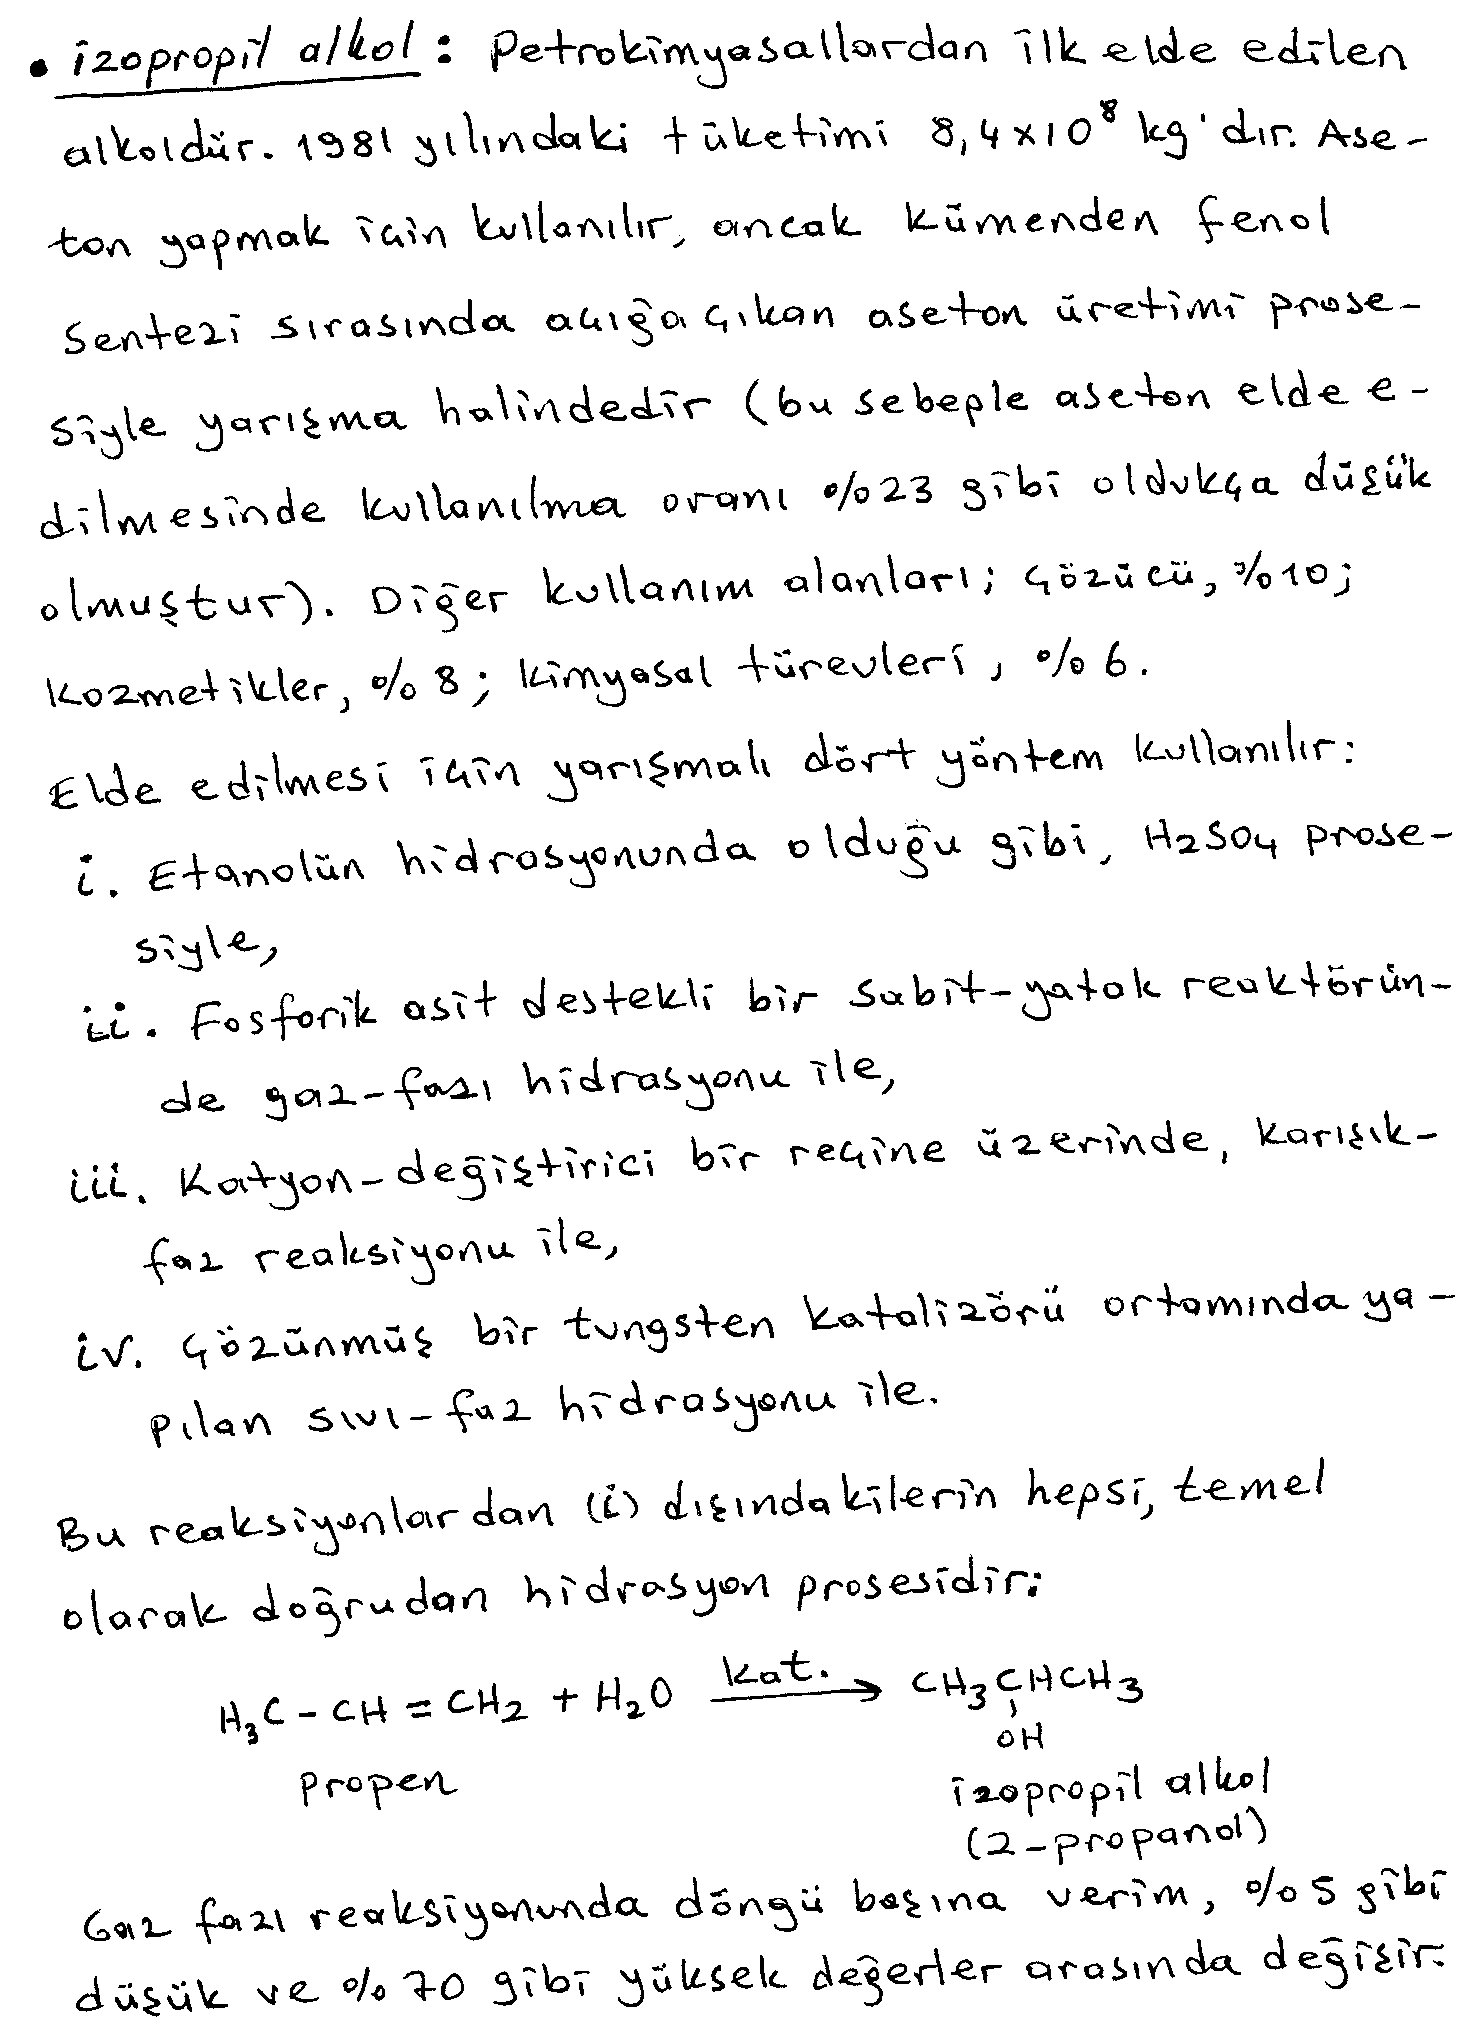 • izopropil alkol : Petrokimyasallardan ilk elde edilen
alkoldür. 1981 yılındaki tüketimi 8,4x10⁸ kg'dır. Ase-
ton yapmak için kullanılır, ancak kümenden fenol
sentezi sırasında açığa çıkan aseton üretimi prose-
siyle yarışma halindedir (bu sebeple aseton elde e-
dilmesinde kullanılma oranı %23 gibi oldukça düşük
olmuştur). Diğer kullanım alanları; çözücü, %10;
kozmetikler, %8; kimyasal türevleri, %6.
Elde edilmesi için yarışmalı dört yöntem kullanılır:
i. Etanolün hidrasyonunda olduğu gibi, H₂SO₄ prose-
siyle,
ii. Fosforik asit destekli bir sabit-yatak reaktörün-
de gaz-fazı hidrasyonu ile,
iii. Katyon-değiştirici bir reçine üzerinde, karışık-
faz reaksiyonu ile,
iv. Çözünmüş bir tungsten katalizörü ortamında ya-
pılan sıvı-faz hidrasyonu ile.
Bu reaksiyonlardan (i) dışındakilerin hepsi, temel
olarak doğrudan hidrasyon prosesidir:
H₃C-CH=CH₂ + H₂O kat. → CH₃CHCH₃
OH
propen izopropil alkol
(2-propanol)
Gaz fazı reaksiyonunda döngü başına verim, %5 gibi
düşük ve %70 gibi yüksek değerler arasında değişir.